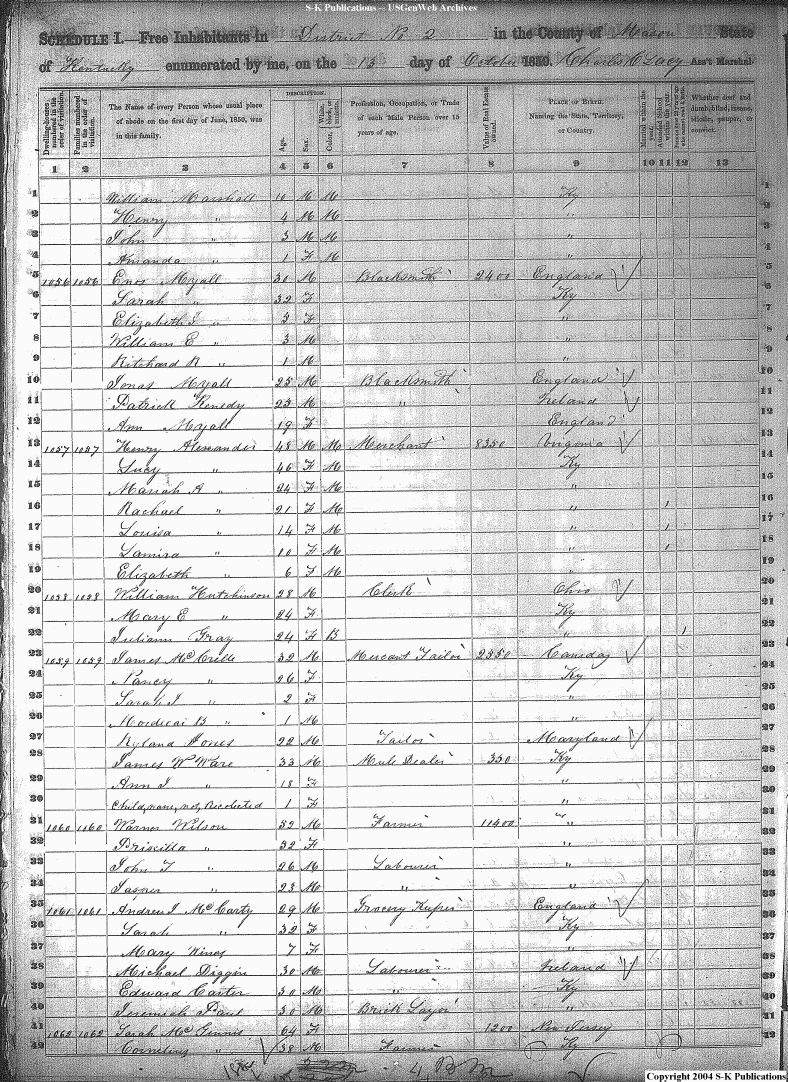 S-K Publications -- USGenWeb Archives
SCHEDULE I.—Free Inhabitants in District No 2 in the County of Mason State
of Kentucky enumerated by me, on the 13 day of October 1850. Charles C Lacy Ass't Marshal.
Dwelling-houses numbered in the order of visitation.
Families numbered in the order of visitation.
The Name of every Person whose usual place of abode on the first day of June, 1850, was in this family.
DESCRIPTION.
Age.
Sex.
White, black or mulatto. Color,
Profession, Occupation, or Trade of each Male Person over 15 years of age.
Value of Real Estate owned.
PLACE OF BIRTH. Naming the State, Territory, or Country.
Married within the year.
Attended School within the year.
Whether deaf and dumb, blind, insane, idiotic, pauper, or convict.
1 2 3 4 5 6 7 8 9 10 11 12 13
1 William Marshall 10 M M Ky 1
2 Henry " 4 M M " 2
3 John " 3 M M " 3
4 Amanda " 1 F M " 4
5 1056 1056 Enos Myall 30 M Blacksmith 2400 England 5
6 Sarah " 32 F Ky 6
7 Elizabeth " 5 F " 7
8 William E " 3 M " 8
9 Ritchard R " 1 M " 9
10 Jonas Myall 25 M Blacksmith England 10
11 Patrick Kenedy 23 M " Ireland 11
12 Ann Myall 19 F England 12
13 1057 1057 Henry Alexander 48 M M Merchant 8350 Virginia 13
14 Lucy " 46 F M Ky 14
15 Mariah A " 24 F M " 15
16 Rachael " 21 F M " 1 16
17 Louisa " 14 F M " 1 17
18 Lamira " 10 F M " 1 18
19 Elizabeth " 6 F M " 19
20 1058 1058 William Hutchinson 28 M Clerk Ohio 20
21 Mary E " 24 F Ky 21
22 Juliann Gray 24 F B " 1 22
23 1059 1059 James McCrille 32 M Mercant Tailor 2350 Canaday 23
24 Nancy " 26 F Ky 24
25 Sarah J " 2 F " 25
26 Mordicai B " 1 M " 26
27 Ryland Jones 22 M Tailor Maryland 27
28 James W Ware 33 M Mule Dealer 350 Ky 28
29 Ann J " 18 F " 29
30 Child, name, not, recolected 1 F " 30
31 1060 1160 Warner Wilson 52 M Farmer 11400 " 31
32 Priscilla " 52 F " 32
33 John T " 26 M Labourer " 33
34 Jasper " 23 M " " 34
35 1061 1061 Andrew J McCarty 29 M Grocery Keeper England 35
36 Sarah " 32 F Ky 36
37 Mary Wines 7 F " 37
38 Michael Diggin 30 M Labourer Ireland 38
39 Edward Carter 30 M Ky 39
40 Jeremiah Paul 30 M Brick Layor " 40
41 1062 1062 Sarah McGinnis 64 F 1200 New Jersey 41
42 Cornelius " 38 M Farmer Ky 42
Copyright 2004 S-K Publications